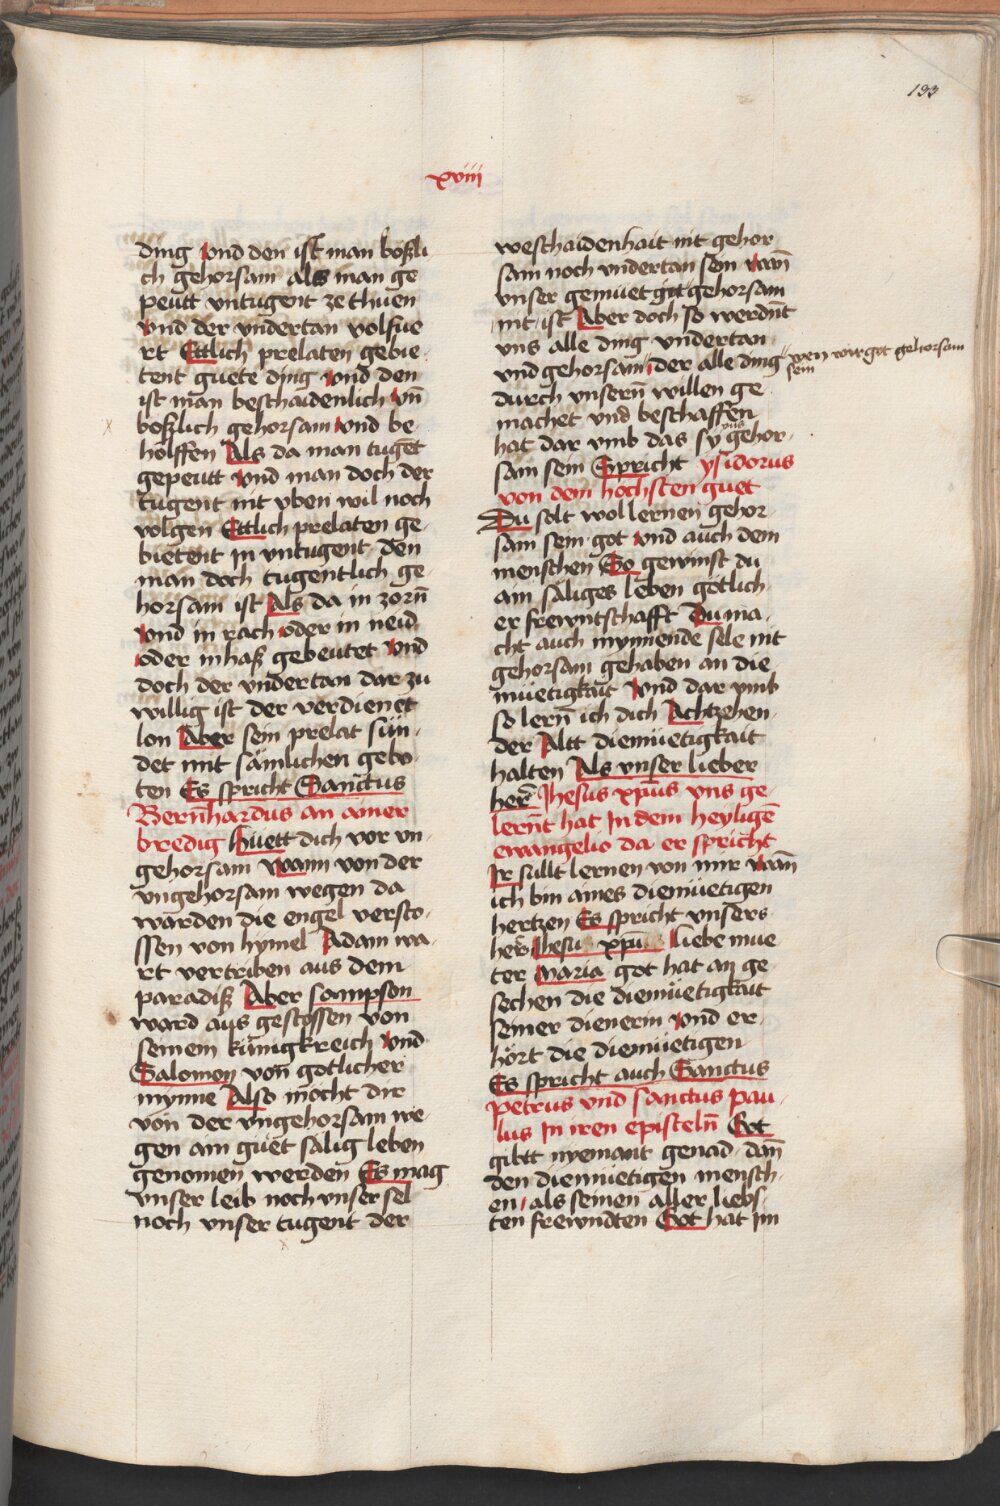 193
xviij
ding vnd den ist man boßli
ch gehorsam als man ge
peutt vntugent ze thuen
vnd der vndertan volfue
rt Ettlich prelaten gebie
tent guete ding vnd den
ist man beschaidenlich vn̄
boßlich gehorsam vnd be
holffen Als da man tugēt
gepeutt vnd man doch der
tugent nit vben wil noch
volgen Ettlich prelaten ge
bietent in vntugent den
man doch tugentlich ge
horsam ist Als da in zorn̄
vnd in rach oder in neid
oder in haß gebeutet vnd
doch der vndertan dar zu
willig ist der verdienet
lon Aber sein prelat sün
det mit sämlichen gebo
ten Es spricht Sanctus
Bernhardus an ainer
bredig Huett dich vor vn
gehorsam Wann von der
vngehorsam wegen da
warden die engel versto
ssen von hymel Adam wa
rt vertriben aus dem
paradiß Aber sampson
ward aus gestossen von
seinem künigkreich vnd
Salomon von gotlicher
mynne Also mocht dir
von der vngehorsam we
gen ain guet salig leben
genomen werden Es mag
vnser leib noch vnser sel
noch vnser tugent der
weschaidenhait nit gehor
sam noch vndertan sein wan̄
vnser gemüet got gehorsam
nit ist Aber doch so werdn̄t
vns alle ding vndertan
vnd gehorsam der alle ding
wen wir got gehorsam
sein
durch vnsern̄ willen ge
machet vnd beschaffen
hat dar vmb das sy vns gehor
sam sein Spricht ysidorus
von dem hochsten guet
Du solt wol lernen gehor
sam sein got vnd auch dem
menschen So gewinst du
ain säliges leben götlich
er frewntschafft Du ma
cht auch mynnende sele nit
gehorsam gehaben an die
müetigkait vnd dar vmb
so lern̄ ich dich Achtzehen
der Altt diemüetigkait
halten Als vnser lieber
her Jhesus xpūs vns ge
lernt hat In dem heyligē
ewangelio da er spricht
Ir sullt lernen von mir wan̄
ich bin aines diemüetigen
hertzen Es spricht vnsers
hern Jhesu xpū liebe mue
ter maria got hat an ge
sechen die diemüetigkait
seiner dienerin vnd er
hört die diemüetigen
Es spricht auch Sanctus
Petrus vnd sanctus pau
lus In iren episteln̄ Got
gibtt nyemant genad dan̄
den diemüetigen mensch
en als seinen aller liebs
ten frewndten Got hat im